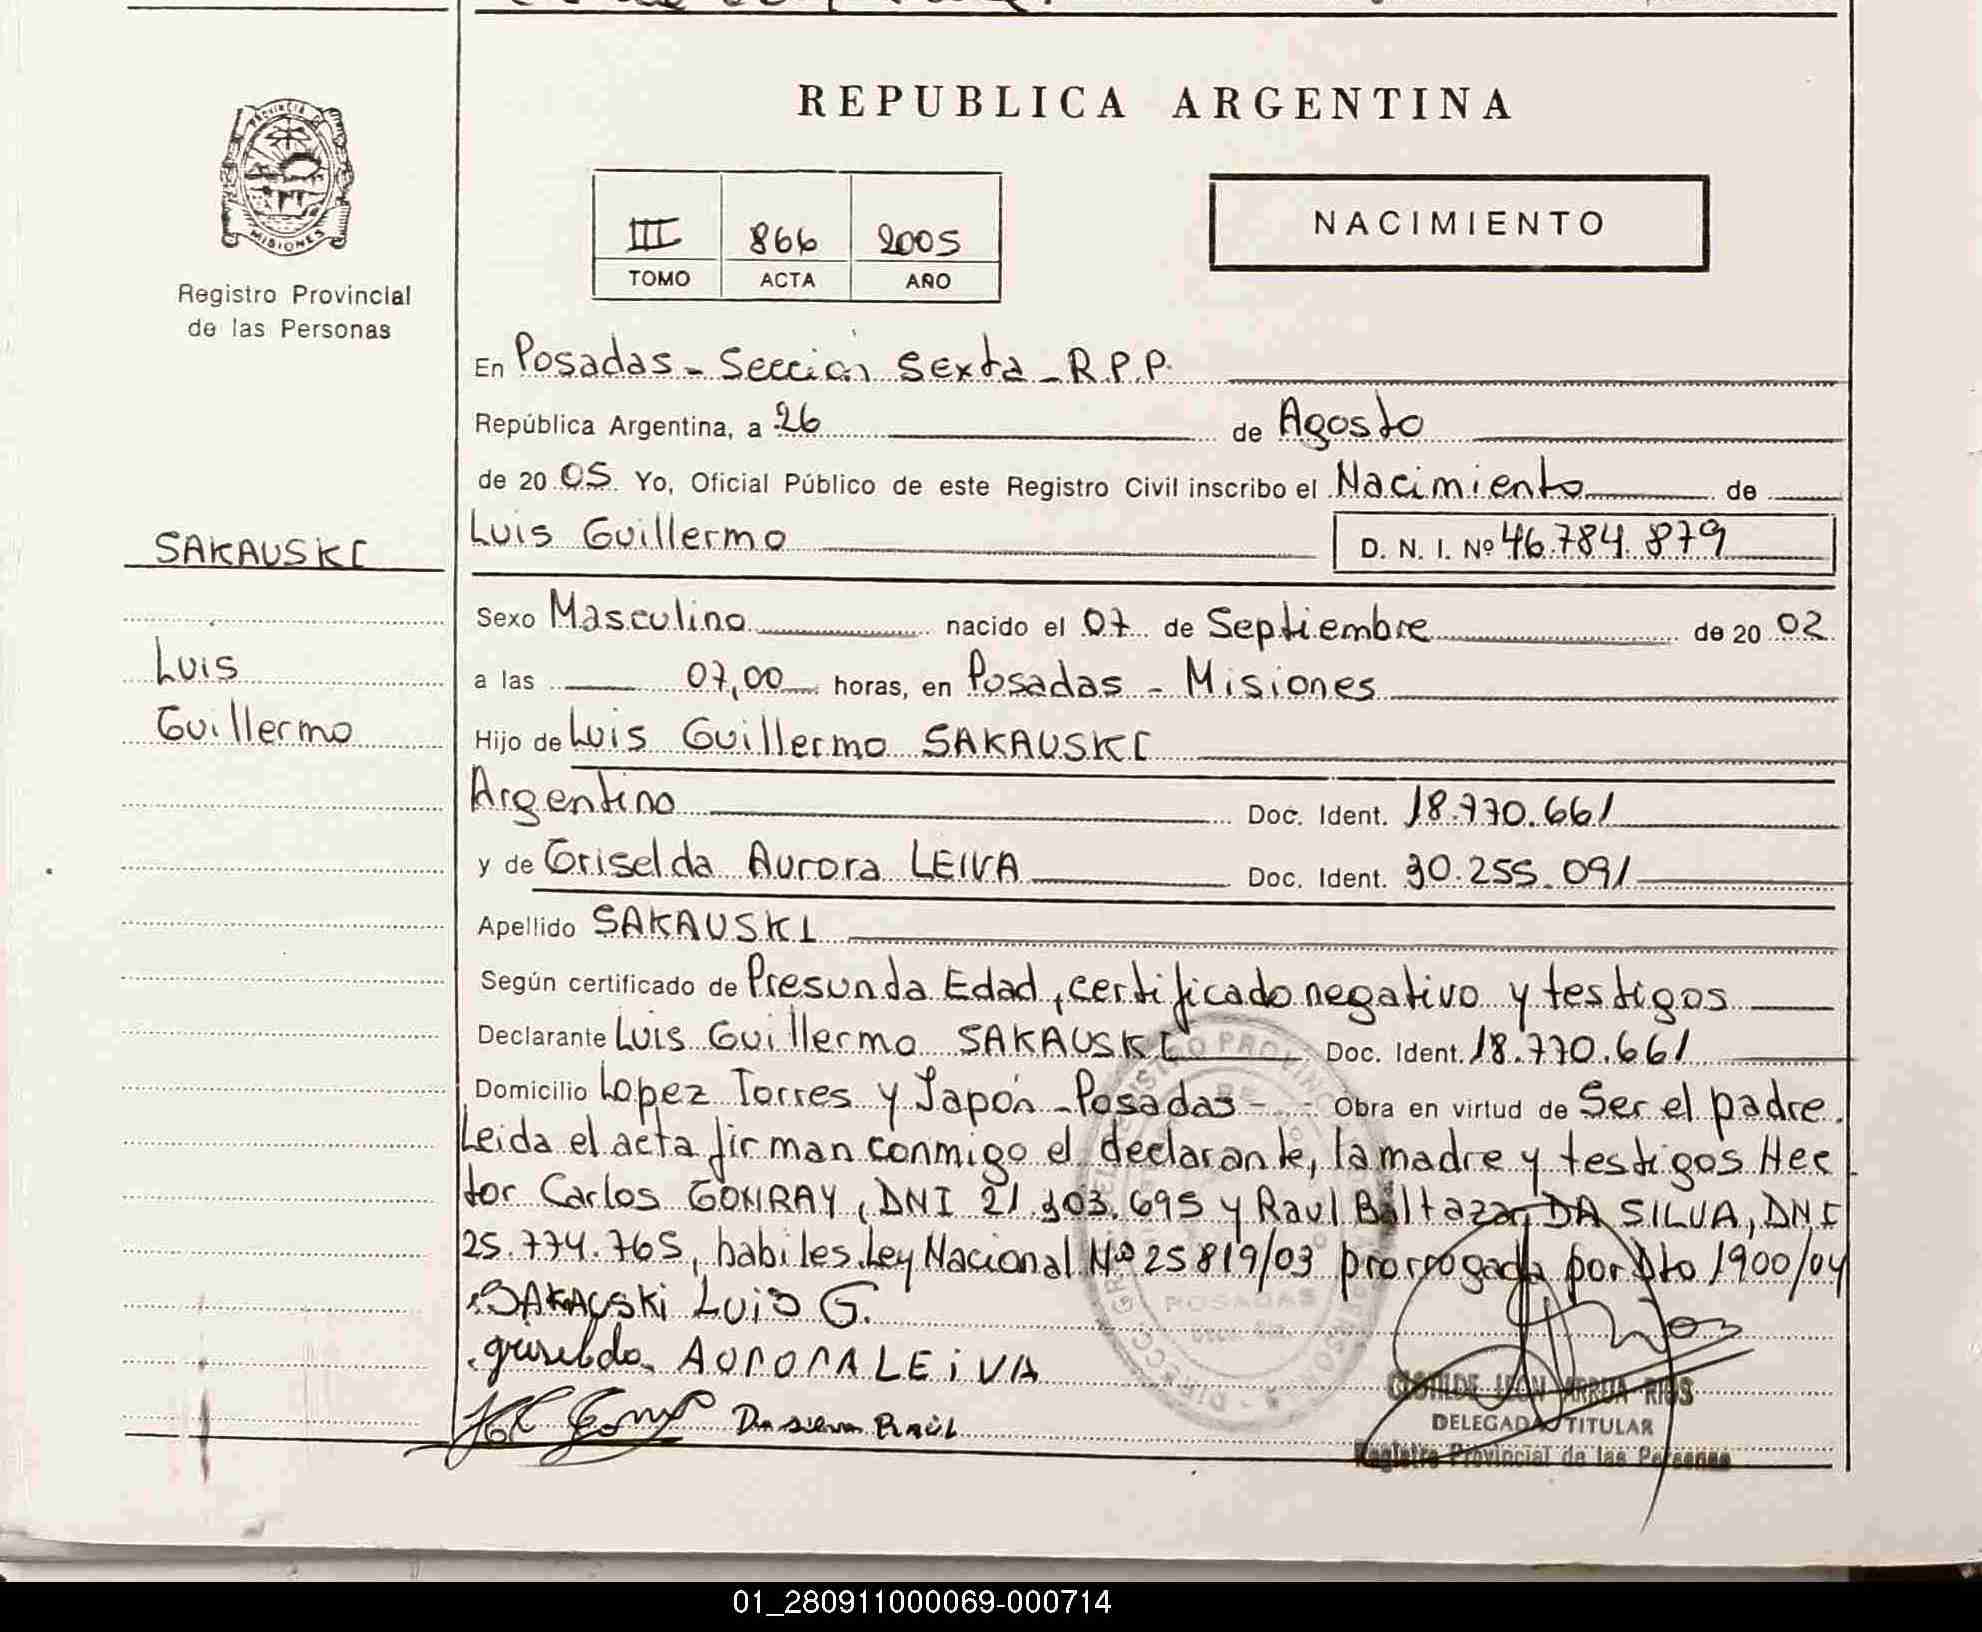 REPUBLICA ARGENTINA
PROVINCIA DE
MISIONES
Registro Provincial
de las Personas
III 866 2005
TOMO ACTA AÑO
NACIMIENTO
En Posadas - Sección Sexta - R.P.P.
República Argentina, a 26 de Agosto
de 20 05 Yo, Oficial Público de este Registro Civil inscribo el Nacimiento de
Luis Guillermo D. N. I. Nº 46.784.879
SAKAUSKI
Luis
Guillermo
Sexo Masculino nacido el 07 de Septiembre de 20 02
a las 07,00 horas, en Posadas - Misiones
Hijo de Luis Guillermo SAKAUSKI
Argentino Doc. Ident. 18.770.661
y de Griselda Aurora LEIVA Doc. Ident. 30.255.091
Apellido SAKAUSKI
Según certificado de Presunda Edad, certificado negativo y testigos
Declarante Luis Guillermo SAKAUSKI Doc. Ident. 18.770.661
Domicilio Lopez Torres y Japón - Posadas - Obra en virtud de Ser el padre.
Leida el acta firman conmigo el declarante, la madre y testigos Hec
tor Carlos GONRAY, DNI 21.303.695 y Raul Baltazar DA SILVA, DNI
25.774.765, habiles Ley Nacional Nº 25819/03 prorrogada por Dto 1900/04
SAKAUSKi LUiS G.
griselda AURORA LEiVA
Da silva RAúL
POSADAS
DELEGADA TITULAR
Registro Provincial de las Personas
01_280911000069-000714